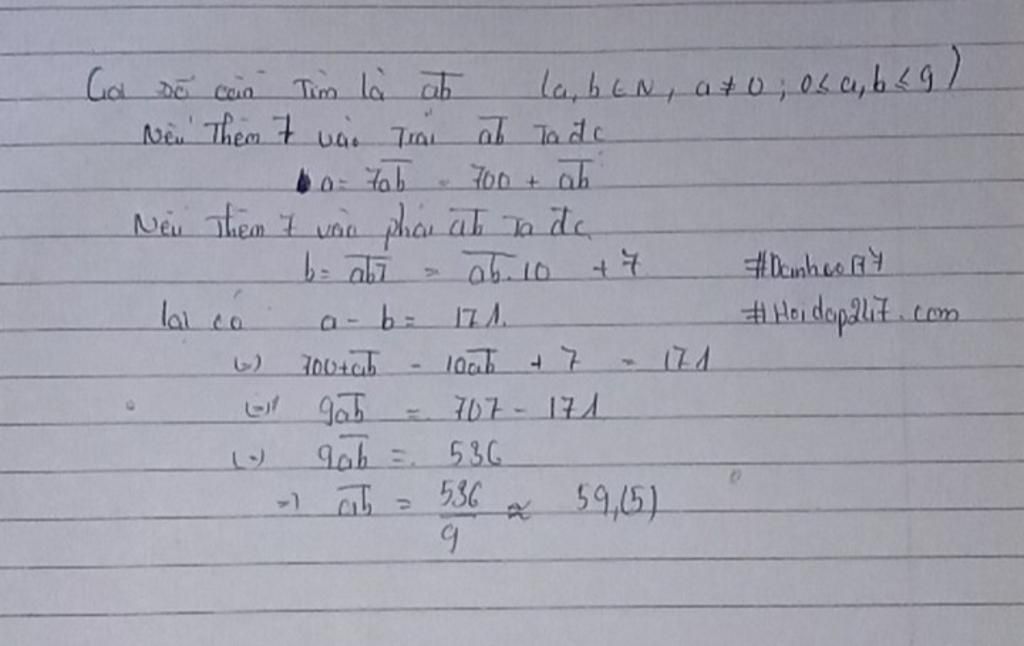 Gọi số cần tìm là ab̅ (a, b ∈ N, a ≠ 0; 0 ≤ a, b ≤ 9)
Nếu thêm 7 vào trái ab̅ ta đc
a = 7ab̅ = 700 + ab̅
Nếu thêm 7 vào phải ab̅ ta đc
b = ab7̅ = ab̅.10 + 7 #Danheo177
lại có a - b = 171. #Hoidap247.com
(=) 700 + ab̅ - 10ab̅ + 7 = 171
(=) 9ab̅ = 707 - 171
(=) 9ab̅ = 536
=) ab̅ = 536/9 ≈ 59,(5)